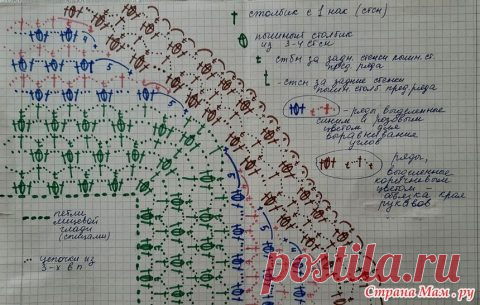 столбик с 1 нак (стсн)
пышный столбик
из 3-х стсн
стбн за задн стенки пышн.ст.
пред ряда
- стсн за задние стенки
пышн. столб пред ряда
- ряды выделенные
синим и розовым
цветом для
выравнивания
углов
ряды,
выделенные
коричневым
цветом
обвязка края
рукавов
петли
лицевой
глади
(спицами)
цепочки из
3-х в п
4
5
5
postila.ru
Страна Мам.ру